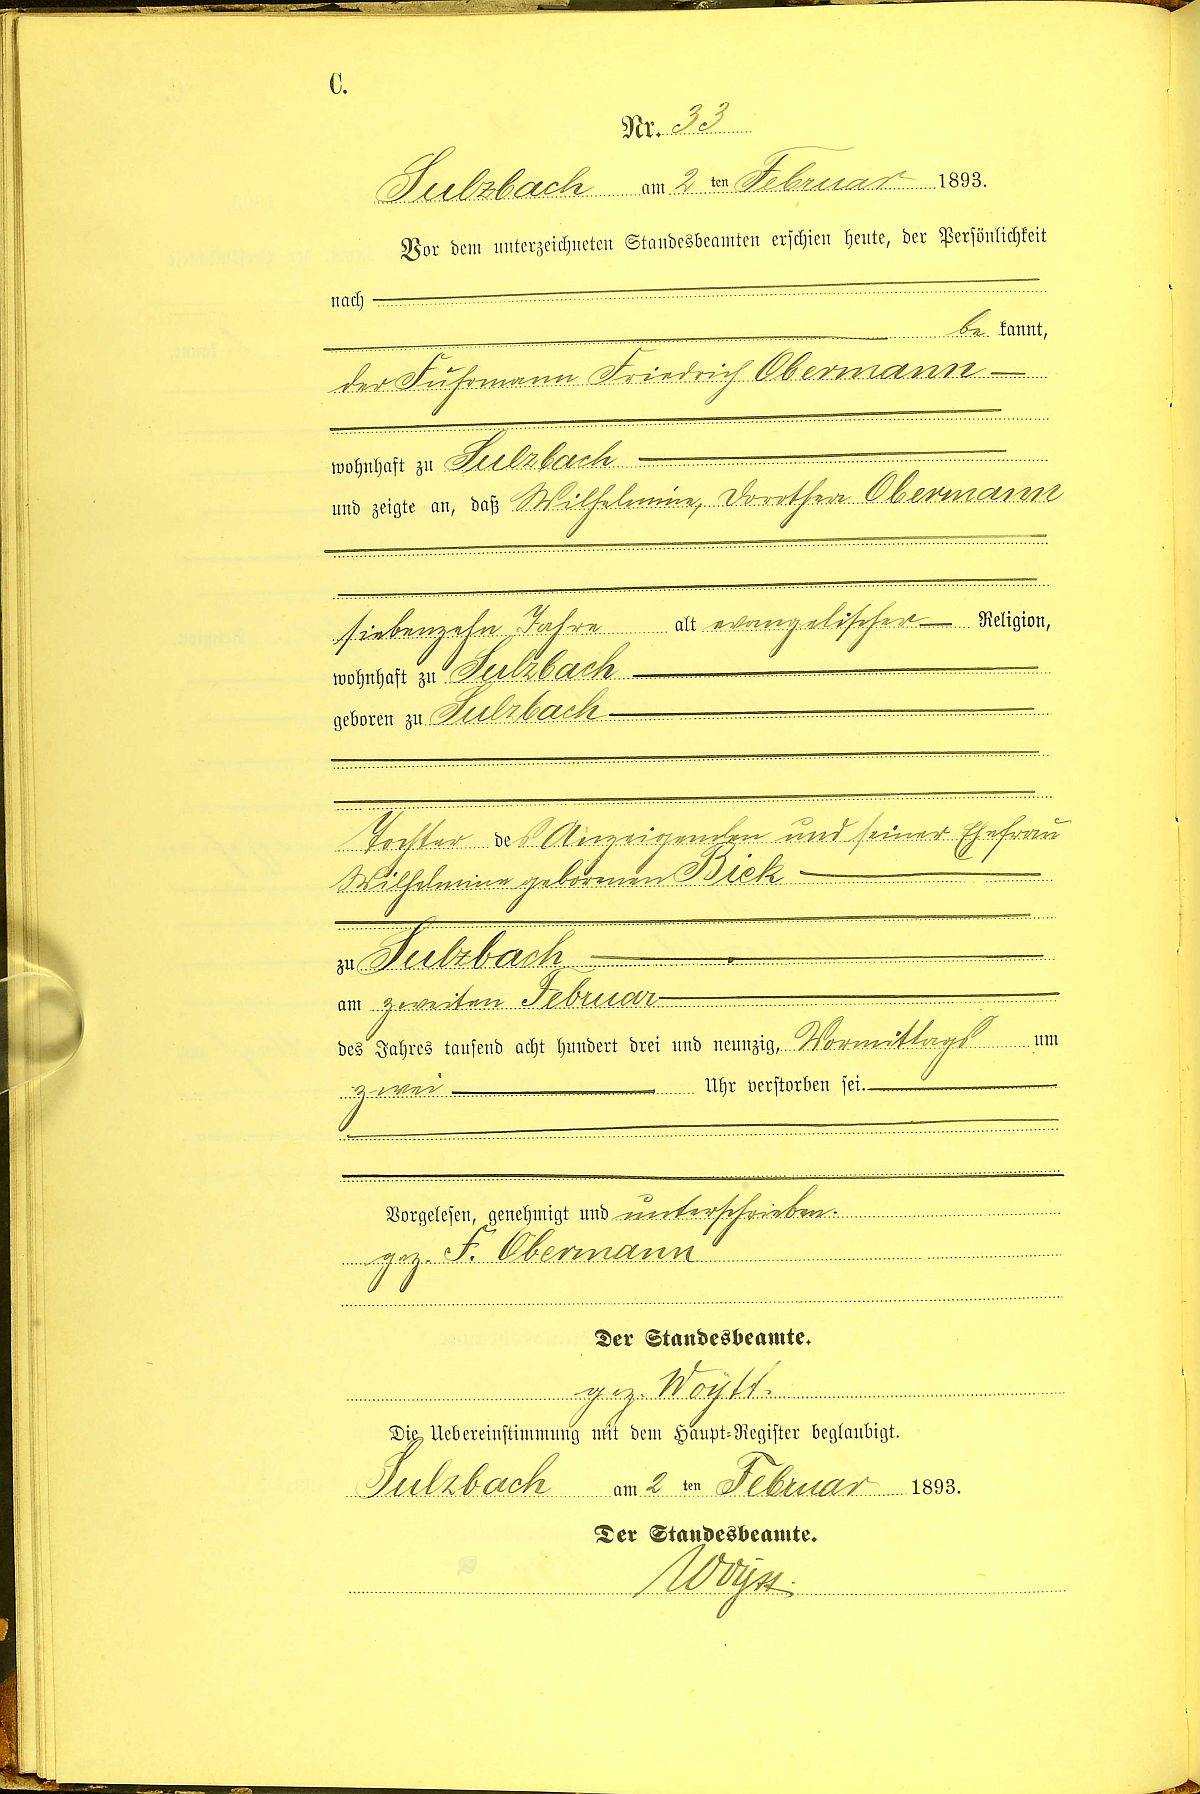 C.
Nr. 33
Sulzbach am 2 ten Februar 1893.
Vor dem unterzeichneten Standesbeamten erschien heute, der Persönlichkeit
nach
be kannt,
der Fuhrmann Friedrich Obermann
wohnhaft zu Sulzbach
und zeigte an, daß Wilhelmine, Dorothea Obermann
siebenzehn Jahre alt evangelischer Religion,
wohnhaft zu Sulzbach
geboren zu Sulzbach
Tochter des Anzeigenden und seiner Ehefrau
Wilhelmine geborenen Bick
zu Sulzbach
am zweiten Februar
des Jahres tausend acht hundert drei und neunzig, Vormittags um
zwei Uhr verstorben sei.
Vorgelesen, genehmigt und unterschrieben.
gez. F. Obermann
Der Standesbeamte.
gez. Woytt.
Die Uebereinstimmung mit dem Haupt-Register beglaubigt.
Sulzbach am 2 ten Februar 1893.
Der Standesbeamte.
Woytt.